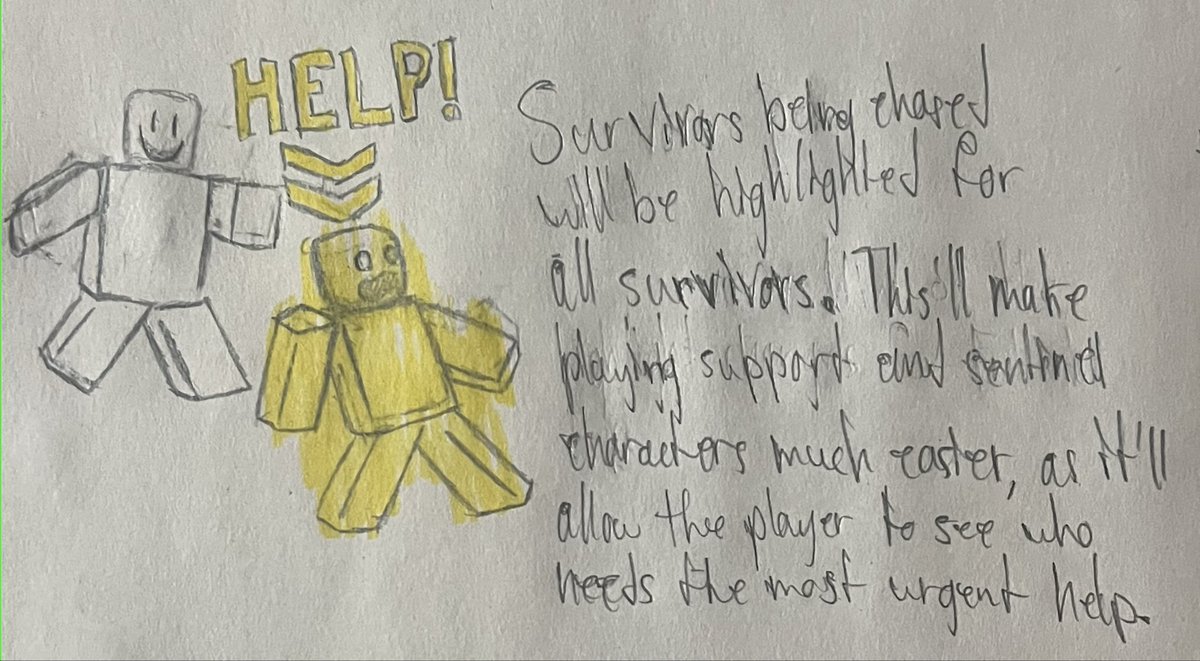 HELP!
Survivors being chased
will be highlighted for
all survivors. This'll make
playing support and sentinel
characters much easier, as it'll
allow the player to see who
needs the most urgent help.